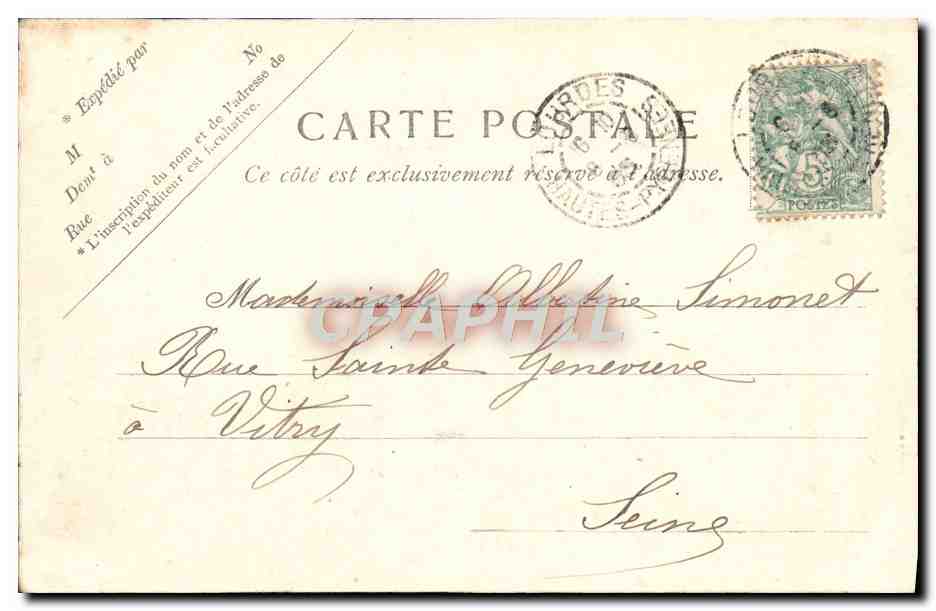 * Expédié par
No
M
Demt à
Rue
* L'inscription du nom et de l'adresse de
l'expéditeur est facultative.
CARTE POSTALE
Ce côté est exclusivement réservé à l'adresse.
LOURDES
HAUTES-PYRENEES
5
POSTES
Mademoiselle Albertine Simonet
CPAPHIL
Rue Sainte Geneviève
à Vitry
Seine